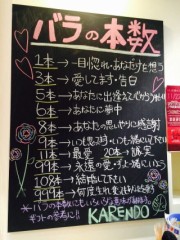 バラの本数
1本→一目惚れ・あなただけを想う
3本→愛してます・告白
5本→あなたに出逢えて
6本→あなたに夢中
8本→あなたの思いやりに感謝
9本→いつも想う いつも一緒に
11本→最愛 20本→誠実
99本→永遠の愛・ずっと一緒にいよう
108本→結婚して下さい
999本→何度生まれ変わってもあなたを愛す
バラの本数にもいろいろな意味が
ギフトの参考に!!
KARENDO